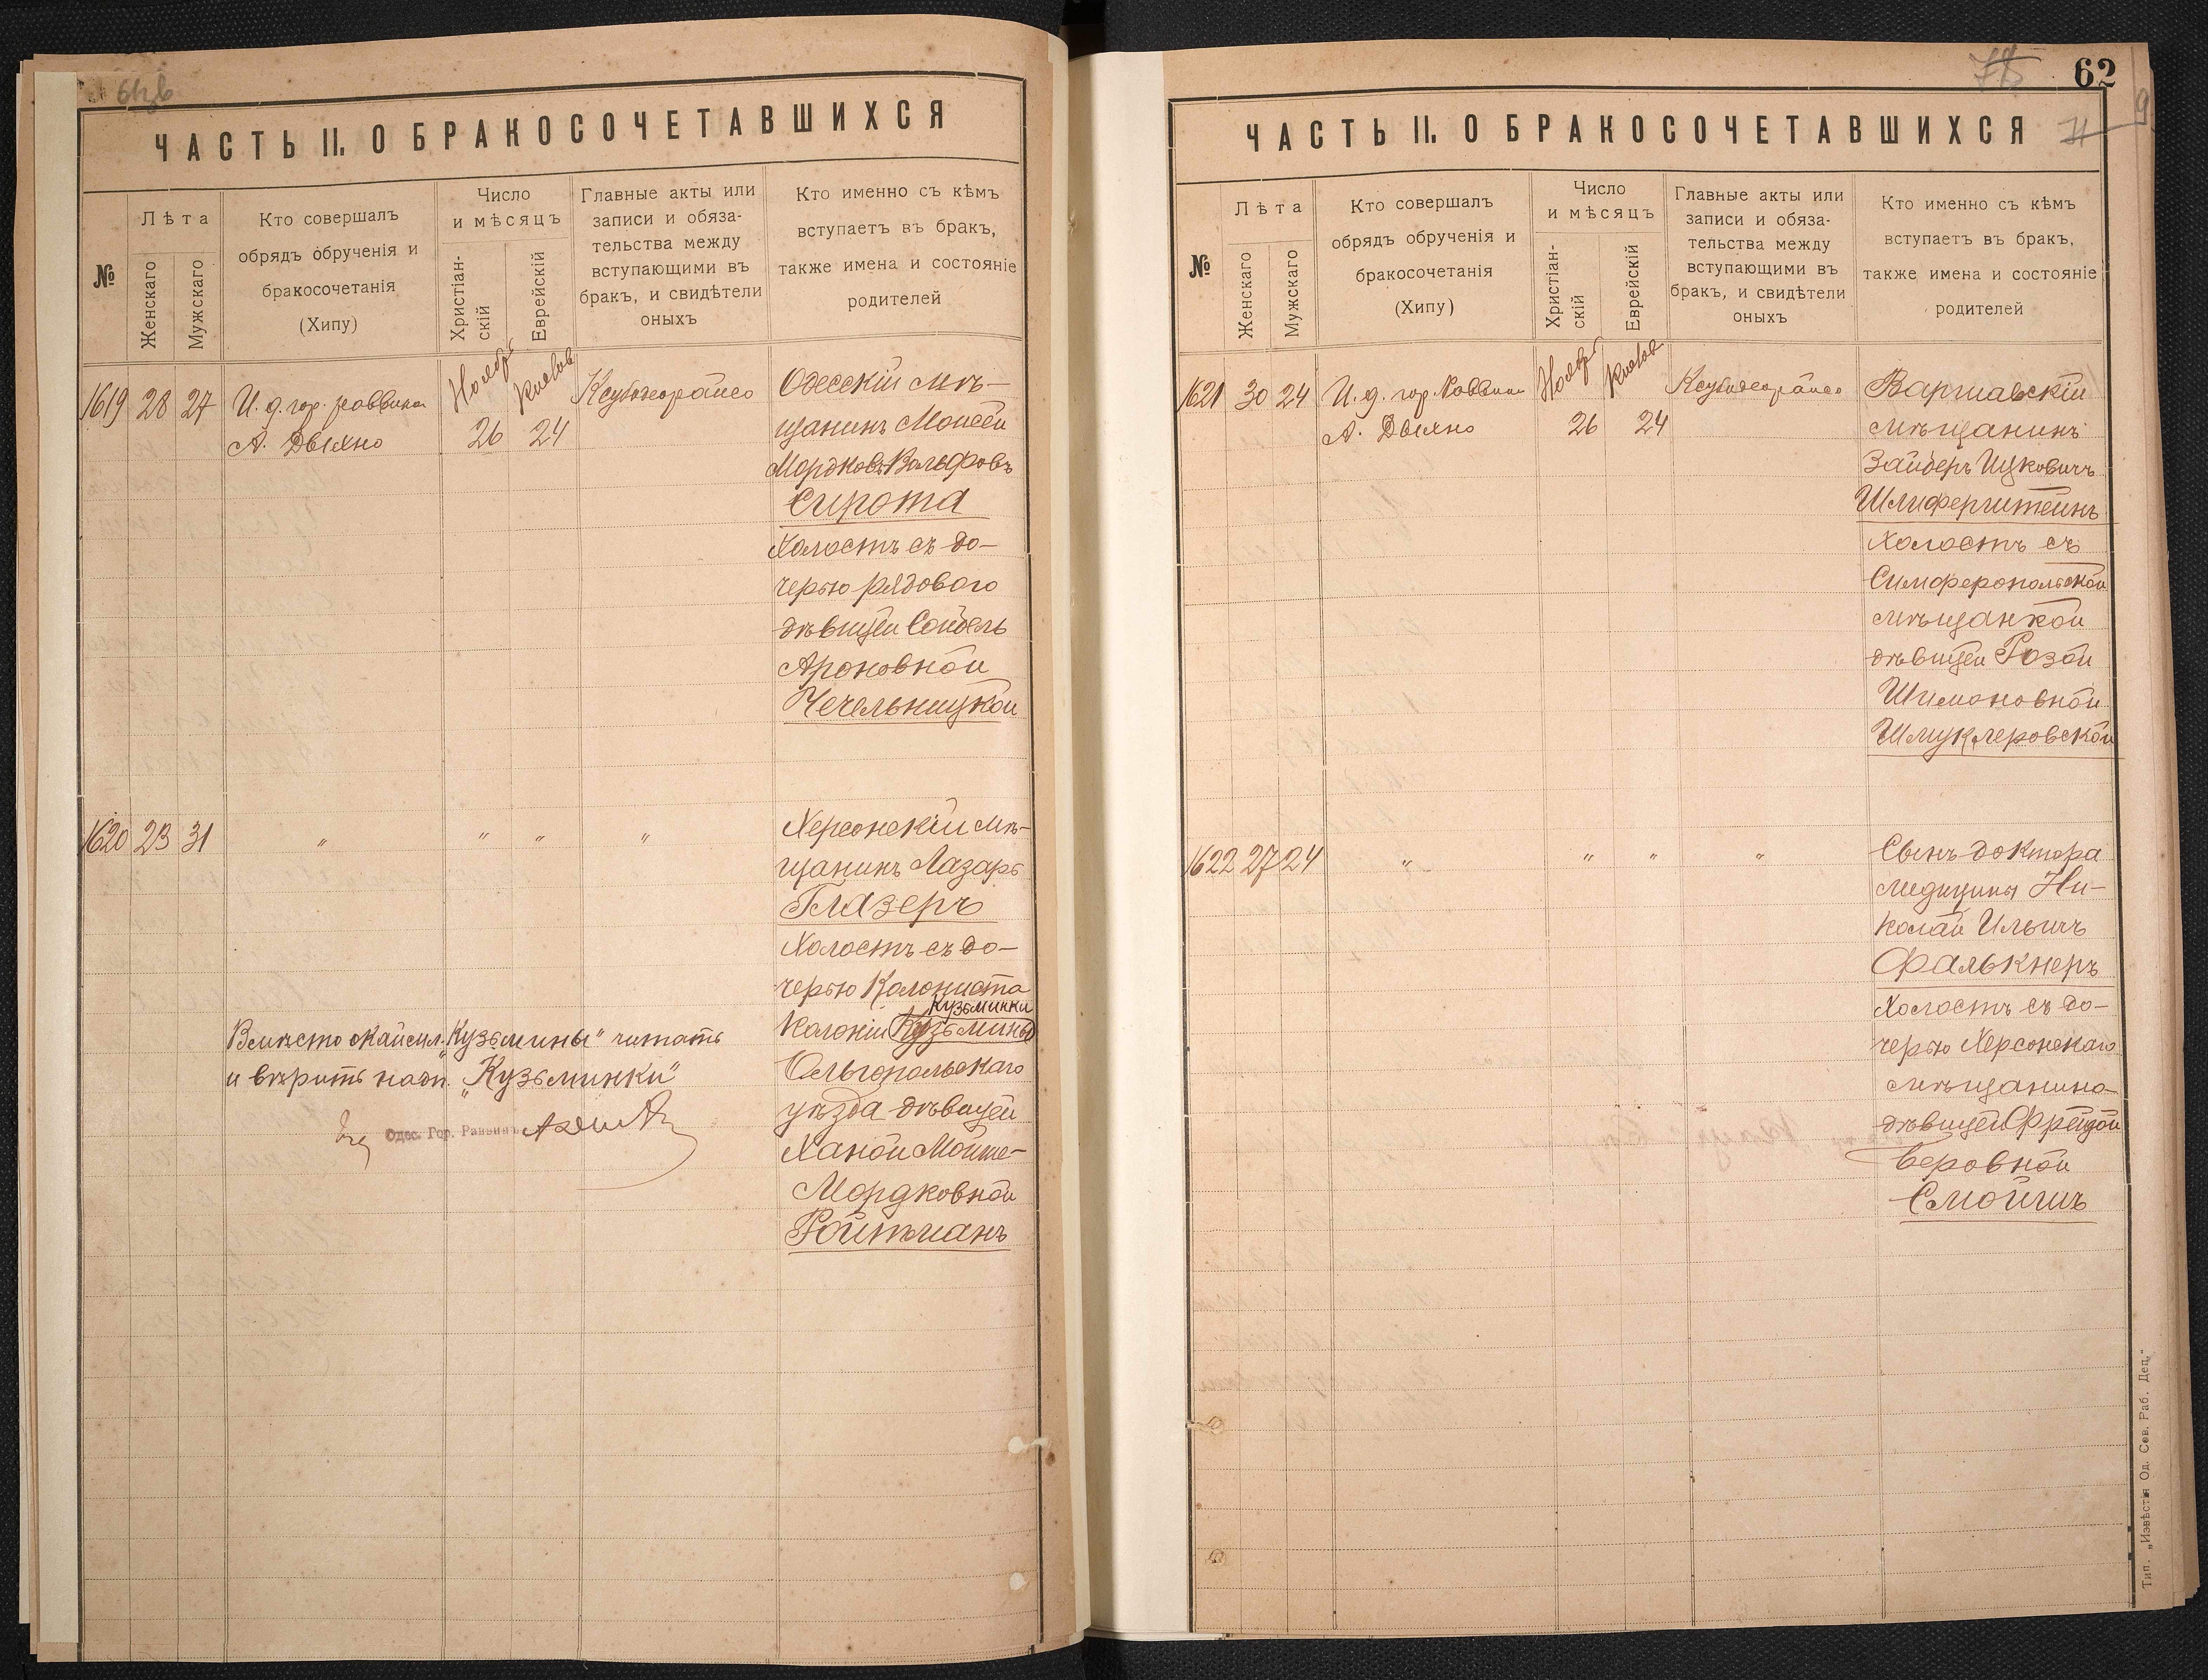 ЧАСТЬ II. О БРАКОСОЧЕТАВШИХСЯ
№
Лѣта
Женскаго
Мужскаго
Кто совершалъ
обрядъ обрученія и
бракосочетанія
(Хипу)
Число
и мѣсяцъ
Христіан-
скій
Еврейскій
Главные акты или
записи и обяза-
тельства между
вступающими въ
бракъ, и свидѣтели
оныхъ
Кто именно съ кѣмъ
вступаетъ въ бракъ,
также имена и состояніе
родителей
1619 28 27
И. д. гор. раввина
А. Двыхно
Ноябрь
26
Кислев
24
Одесскій мѣ-
щанинъ Моисей
Мордковъ Вольфовъ
Сирота
Холостъ съ до-
черью рядового
дѣвицей Сойбель
Ароновной
Чечельницкой
1620 23 31
" " " "
Херсонскій мѣ-
щанинъ Лазарь
Глазеръ
Холостъ съ до-
черью Колониста
Кузьминки
Колоніи Кузьмины
Ольгопольскаго
уѣзда дѣвицей
Ханой Мойше-
Мордковной
Ройтманъ
"Кузьмины" читать
и вѣрить надп. "Кузьминки"
Одес. Гор. Раввинъ
62
ЧАСТЬ II. О БРАКОСОЧЕТАВШИХСЯ
№
Лѣта
Женскаго
Мужскаго
Кто совершалъ
обрядъ обрученія и
бракосочетанія
(Хипу)
Число
и мѣсяцъ
Христіан-
скій
Еврейскій
Главные акты или
записи и обяза-
тельства между
вступающими въ
бракъ, и свидѣтели
оныхъ
Кто именно съ кѣмъ
вступаетъ въ бракъ,
также имена и состояніе
родителей
1621 30 24
И. д. гор. Раввина
А. Двыхно
Ноябрь
26
Кислев
24
Варшавскій
мѣщанинъ
Зайберъ Ицковичъ
Шлиферштейнъ
Холостъ съ
Симферопольской
мѣщанкой
дѣвицей Розой
Шимоновной
Шмуклеровской
1622 27 24
" " " "
Сынъ доктора
медицины Ни-
колай Ильичъ
Фалькнеръ
Холостъ съ до-
черью Херсонскаго
мѣщанина
дѣвицей Фрейдой
Беровной
Смойшъ
Тип. „Извѣстія Од. Сов. Раб. Деп."